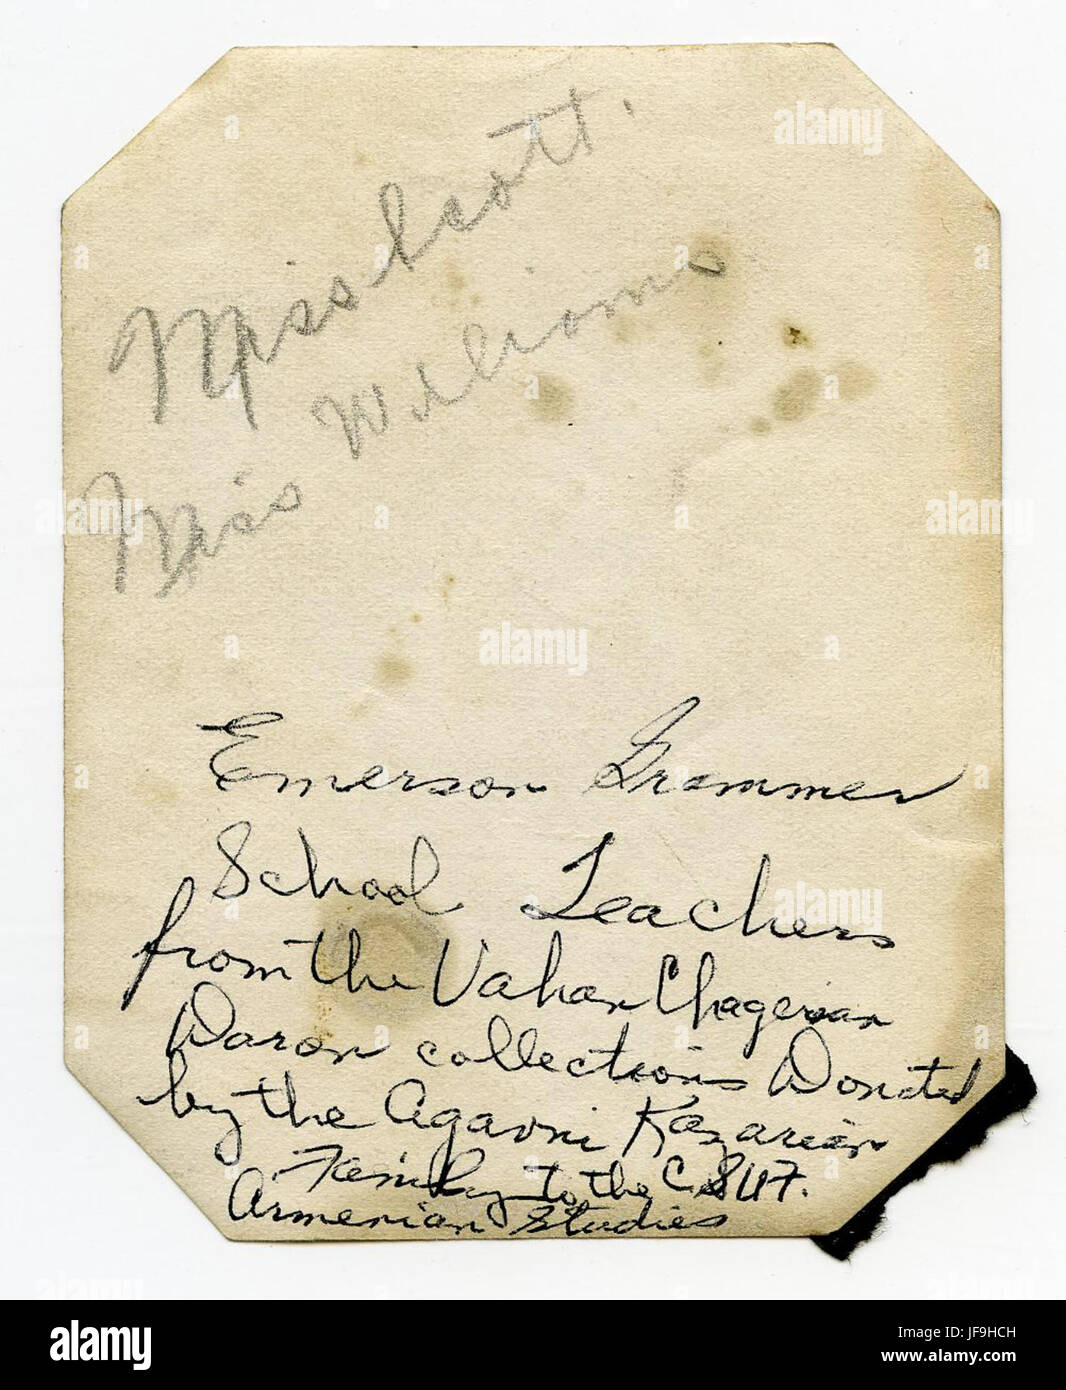 Miss Scott.
Miss Williams
Emerson Grammer
School Teachers
from the Vahan Chagerian
Daron collections Donated
by the Agavni Kazarian
Family to the CSUF.
Armenian Studies
alamy
Image ID: JF9HCH
www.alamy.com